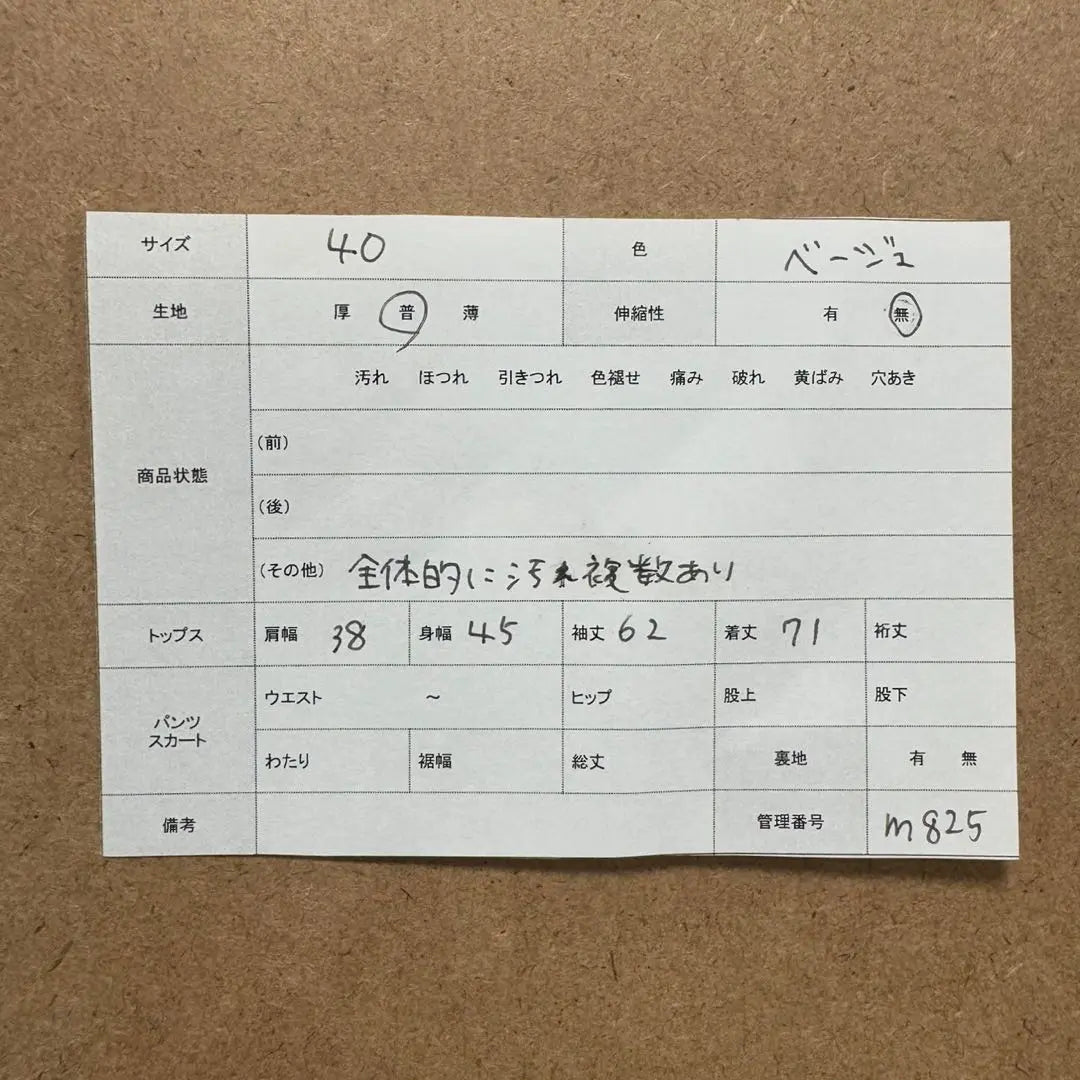 サイズ 40 色 ベージュ
生地 厚 普 薄 伸縮性 有 無
汚れ ほつれ 引きつれ 色褪せ 痛み 破れ 黄ばみ 穴あき
商品状態
(前)
(後)
(その他) 全体的に汚れ複数あり
トップス 肩幅 38 身幅 45 袖丈 62 着丈 71 裄丈
パンツ
スカート
ウエスト ～ ヒップ 股上 股下
わたり 裾幅 総丈 裏地 有 無
備考 管理番号 m825